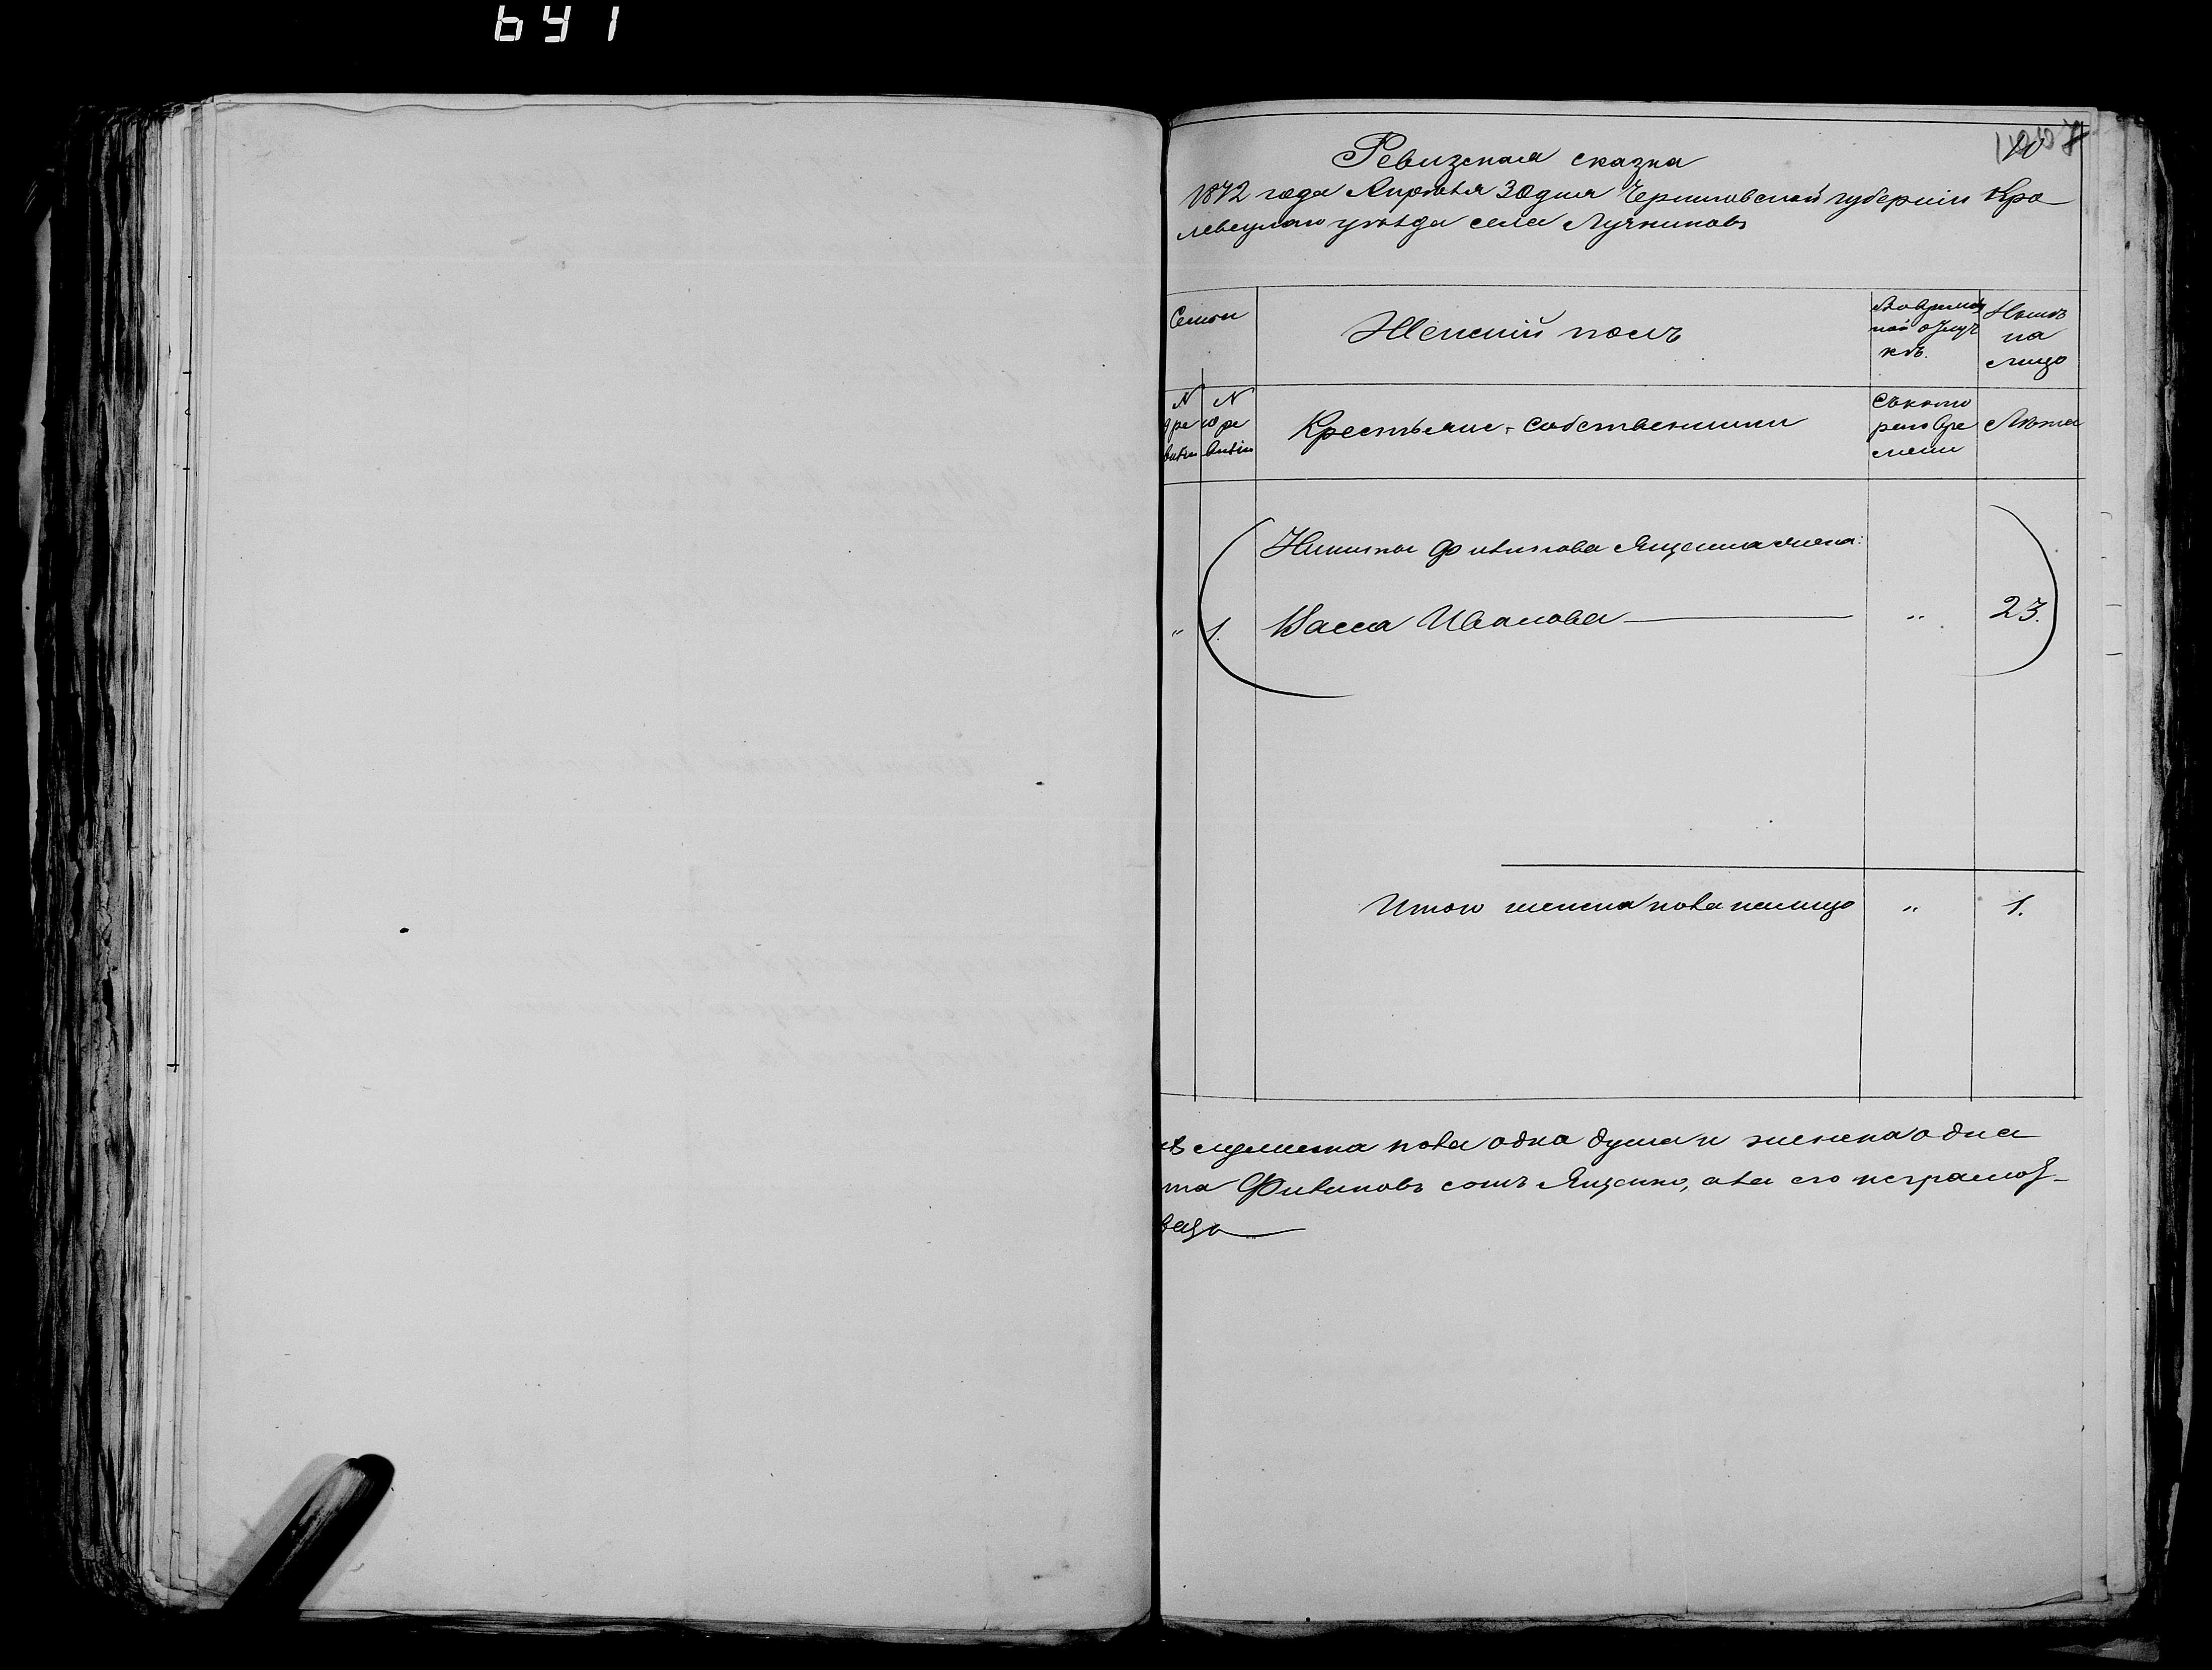 641
Ревизская сказка
1872 года Апрѣля 30 дня Черниговской губерніи Кро
левецкаго уѣзда села Лучниковъ
Семьи
Женскій полъ
Во времен
ной отлуч
кѣ.
Нынѣ
на
лицо
N
9 ре
визіи
N
10 ре
визіи
Крестьяне-собственники
Съ кото
раго вре
мени
Лѣта
Никиты Филипова Ященка жена:
" 1. Васса Иванова — " 23.
Итого женска пола налицо " 1.
пола одна душа и женска одна
та Филиповъ сынъ Ященко, а за его неграмот-